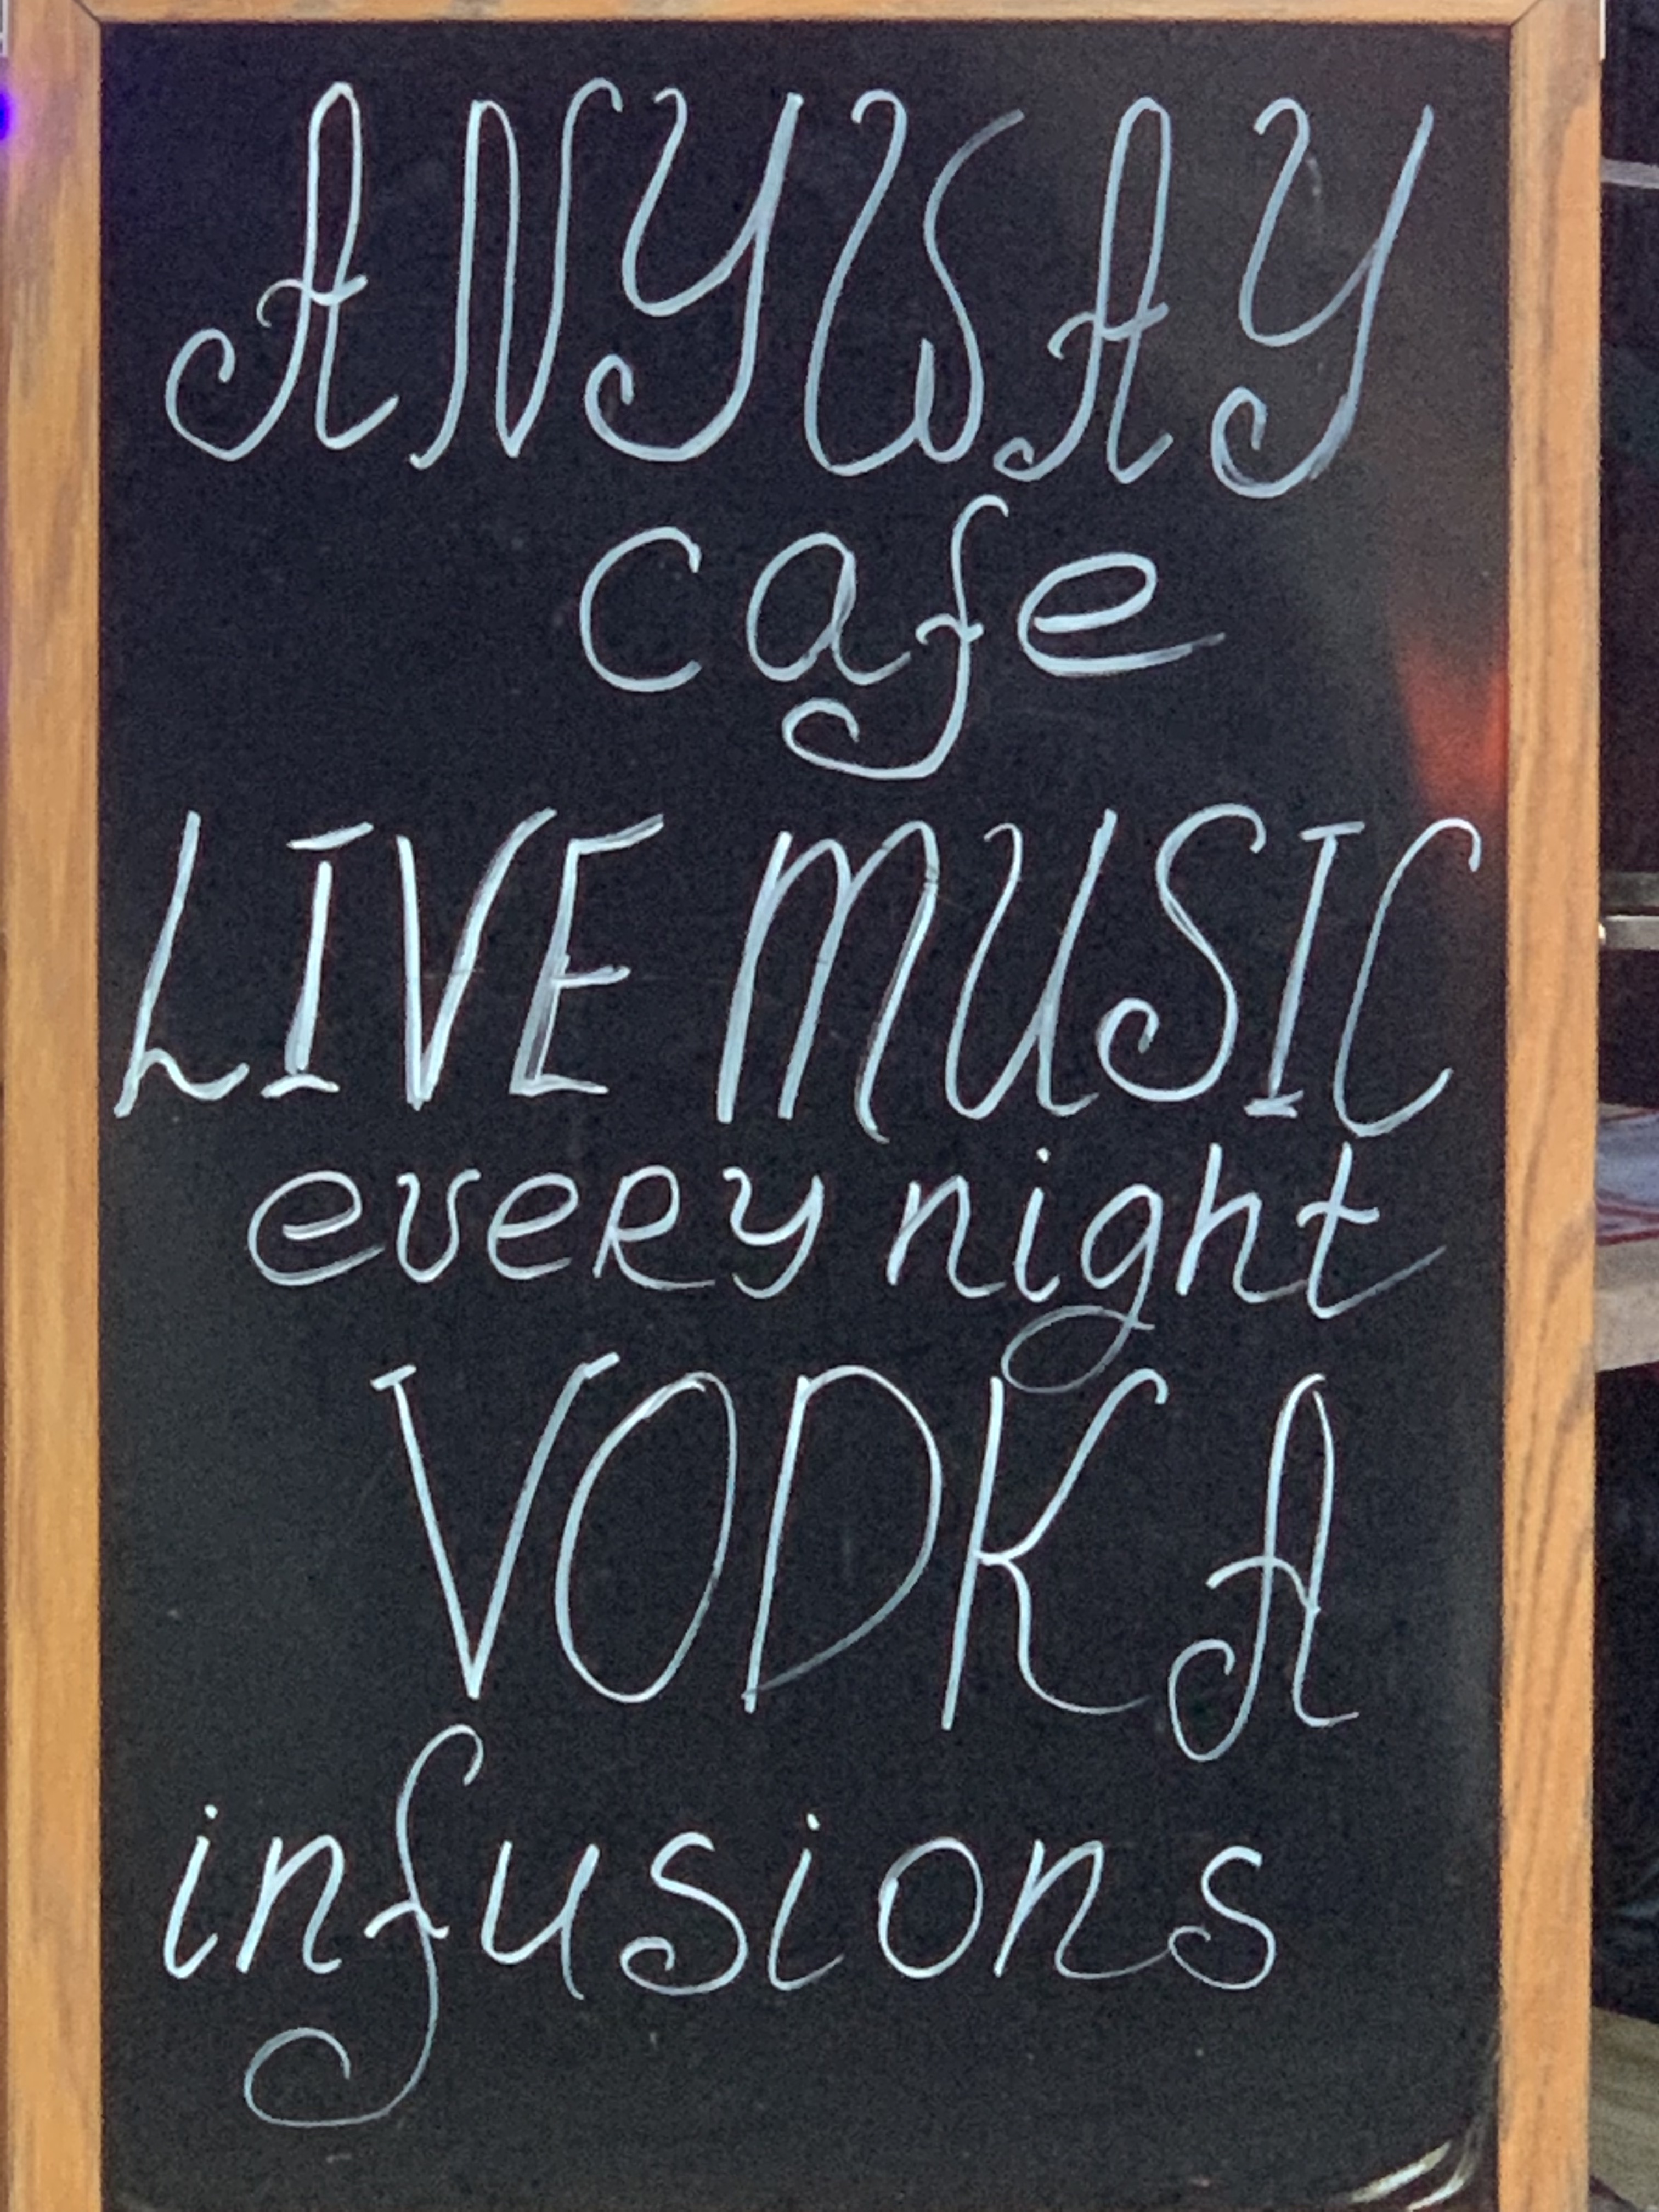 ANYWAY
cafe
LIVE MUSIC
eveRy night
VODKA
infusions